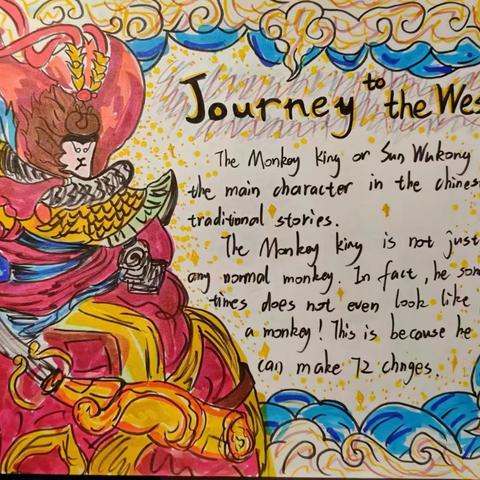 Journey to the Wes
The Monkey king or Sun Wukong
the main character in the chines
traditional stories.
The Monkey king is not just
any normal monkey. In fact, he som
times does not even look like
a monkey! This is because he
can make 72 chnges.